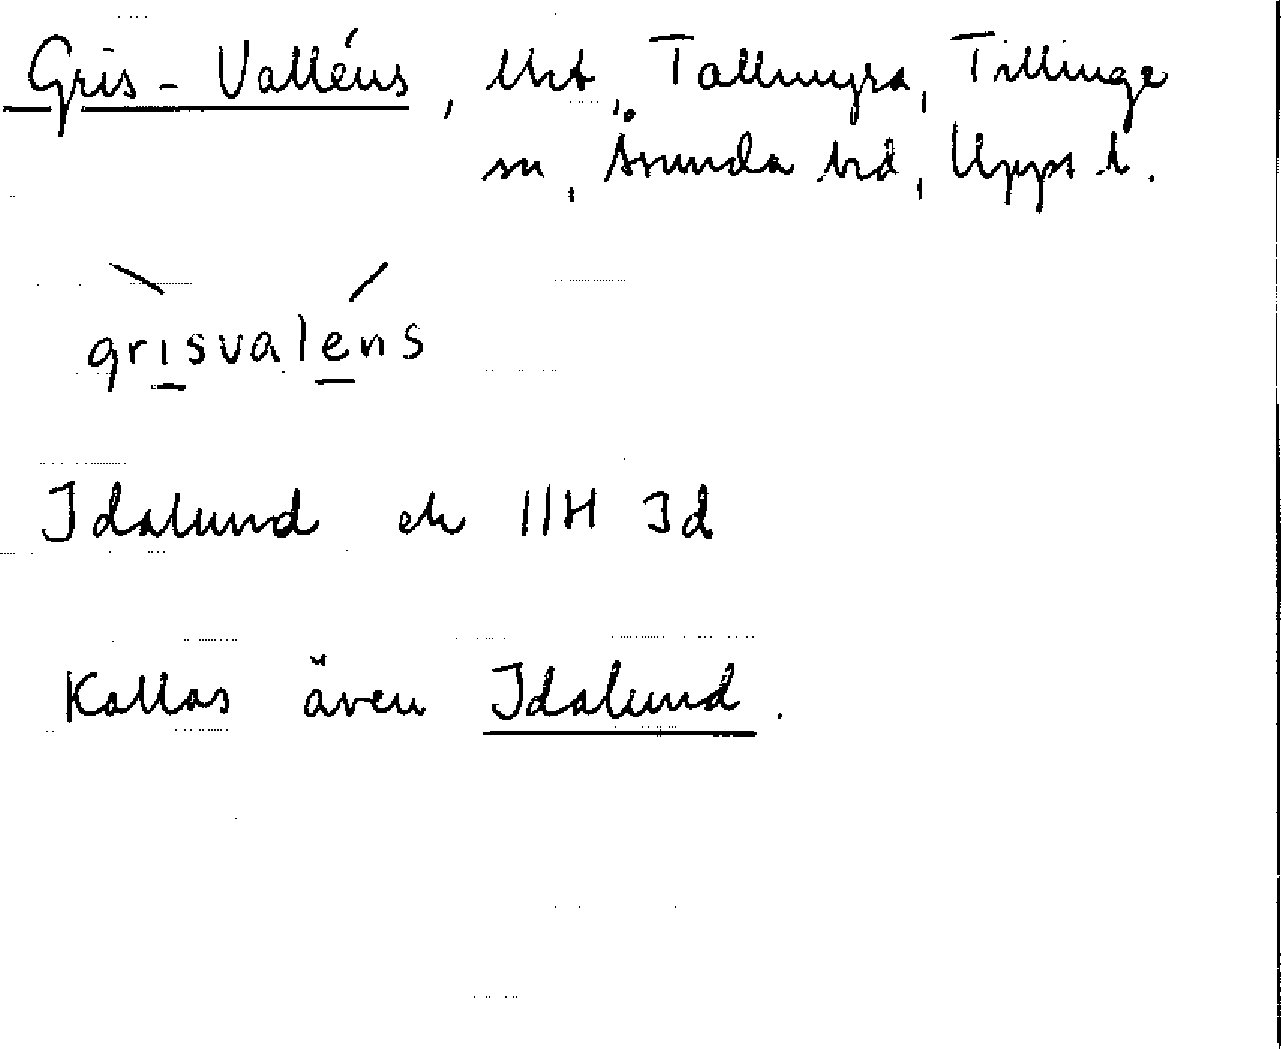 Gris-Valléns, lht, Tallmyra, Tillinge
sn, Åsunda hd, Upps l.
grisvaléns
Idalund ek 11H Id
Kallas även Idalund.